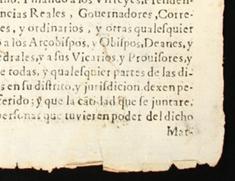 ncias Reales, Gouernadores, Corre-
es, y ordinarios, y otras qualesquier
o a los Arçobispos, y Obispos, Deanes, y
edrales, y a sus Vicarios, y Prouisores, y
e todas, y qualesquier partes de las di-
s en su distrito, y jurisdicion, dexen pe-
ferido; y que la cantidad que se juntare,
personas que tuvieren poder del dicho
Mar-